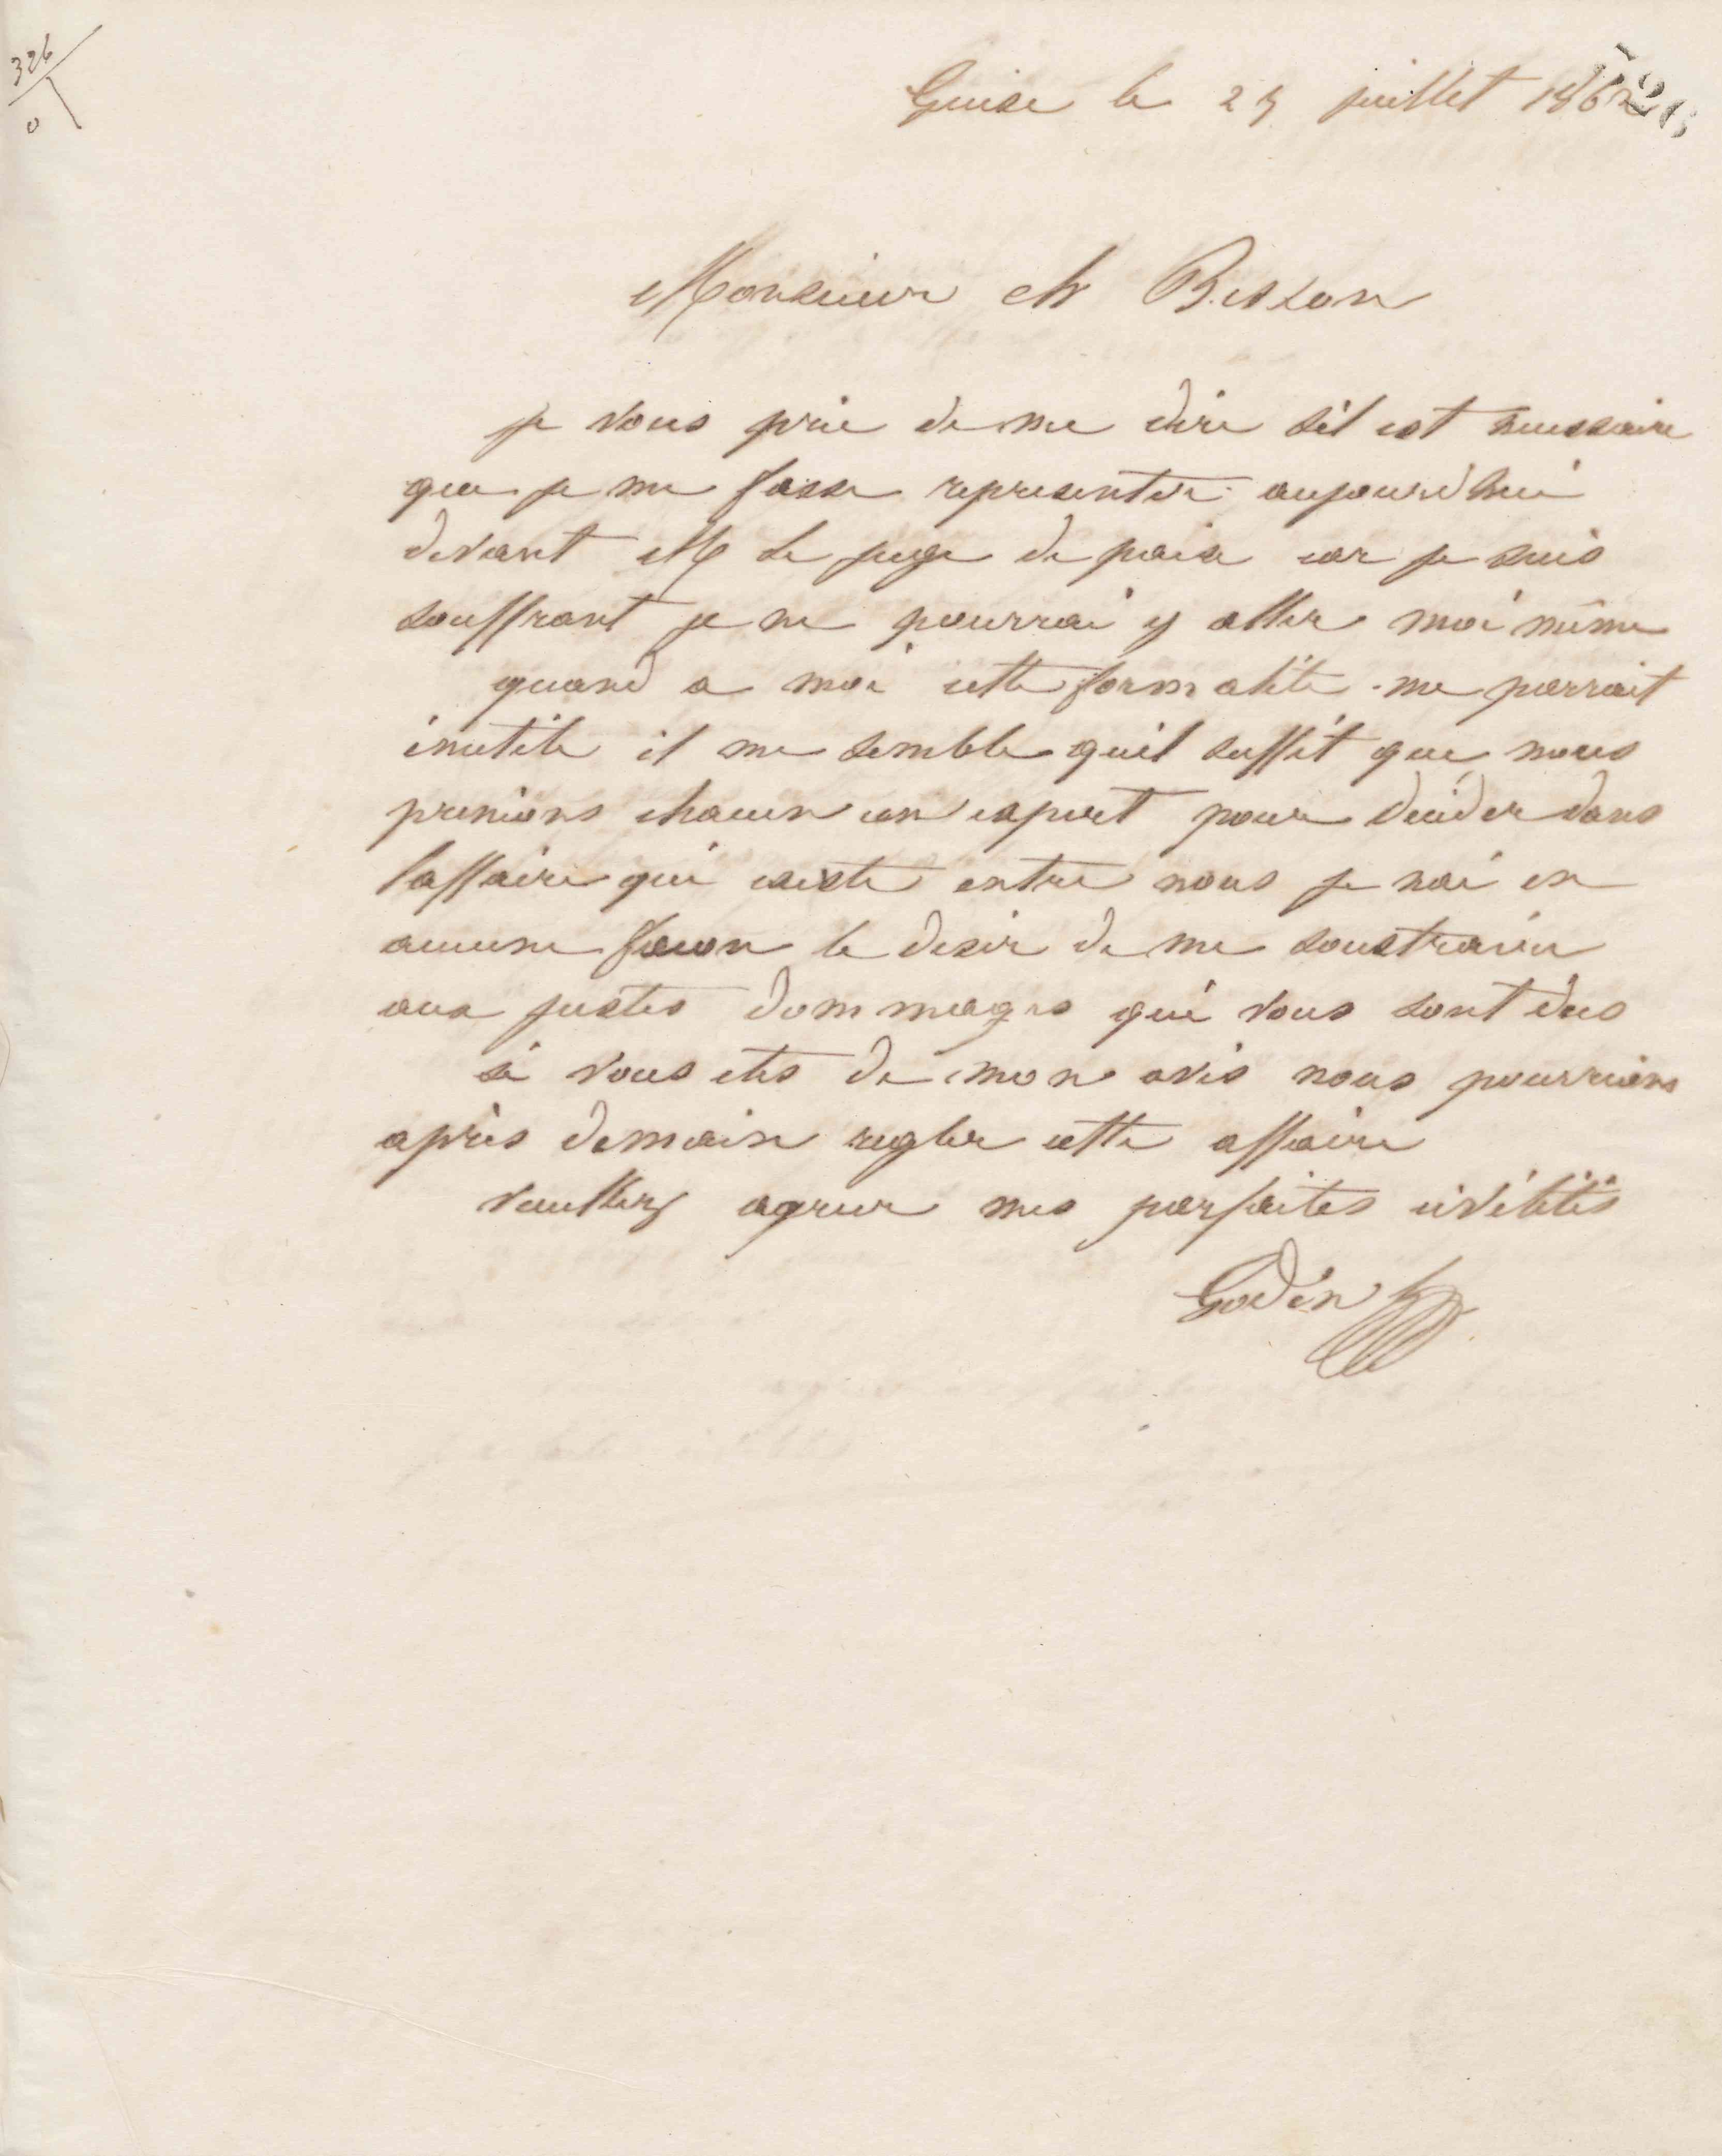 326
0
Guise le 25 juillet 186
Monsieur ch Besson
je vous prie de me dire sil est necessaire
que je me fasse representer aujourdhui
devant M le juge de paix car je suis
souffrant je ne pourrai y aller moi même
quand a moi cette formalité me parrait
inutile il me semble quil suffit que nous
prenions chacun un expert pour decider dans
laffaire qui existe entre nous je nai en
aucune facon le desir de me soustraire
aux justes dommages qui vous sont dus
si vous etes de mon avis nous pourrions
après demain regler cette affaire
veuillez agreer mes parfaites civilités
Godin